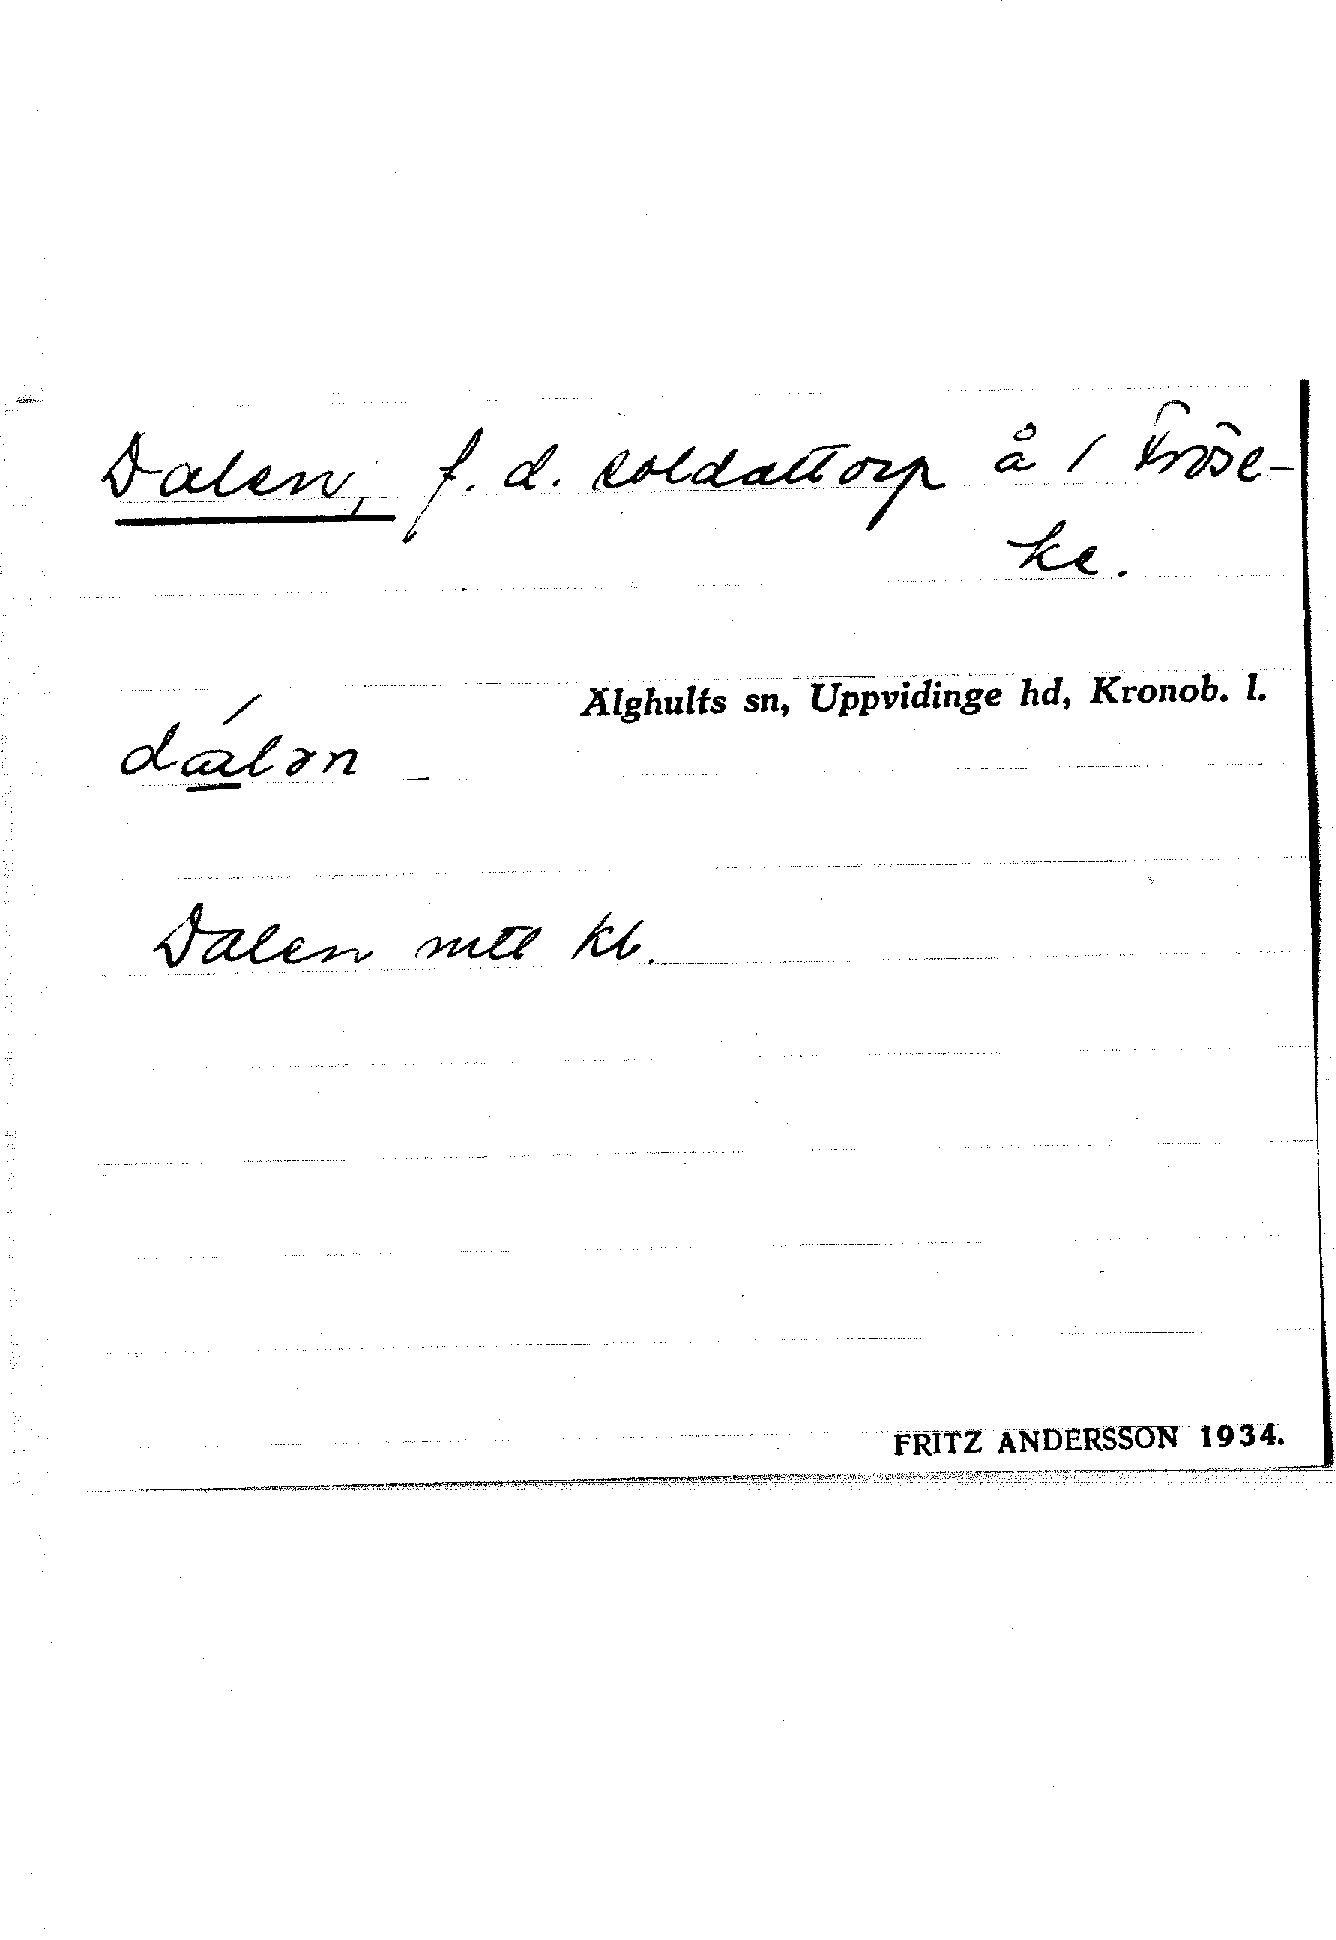 Dalen, f. d. soldattorp å 1 Fröse-
ke.
Älghults sn, Uppvidinge hd, Kronob. l.
dálən
Dalen mtl kb.
FRITZ ANDERSSON 1934.